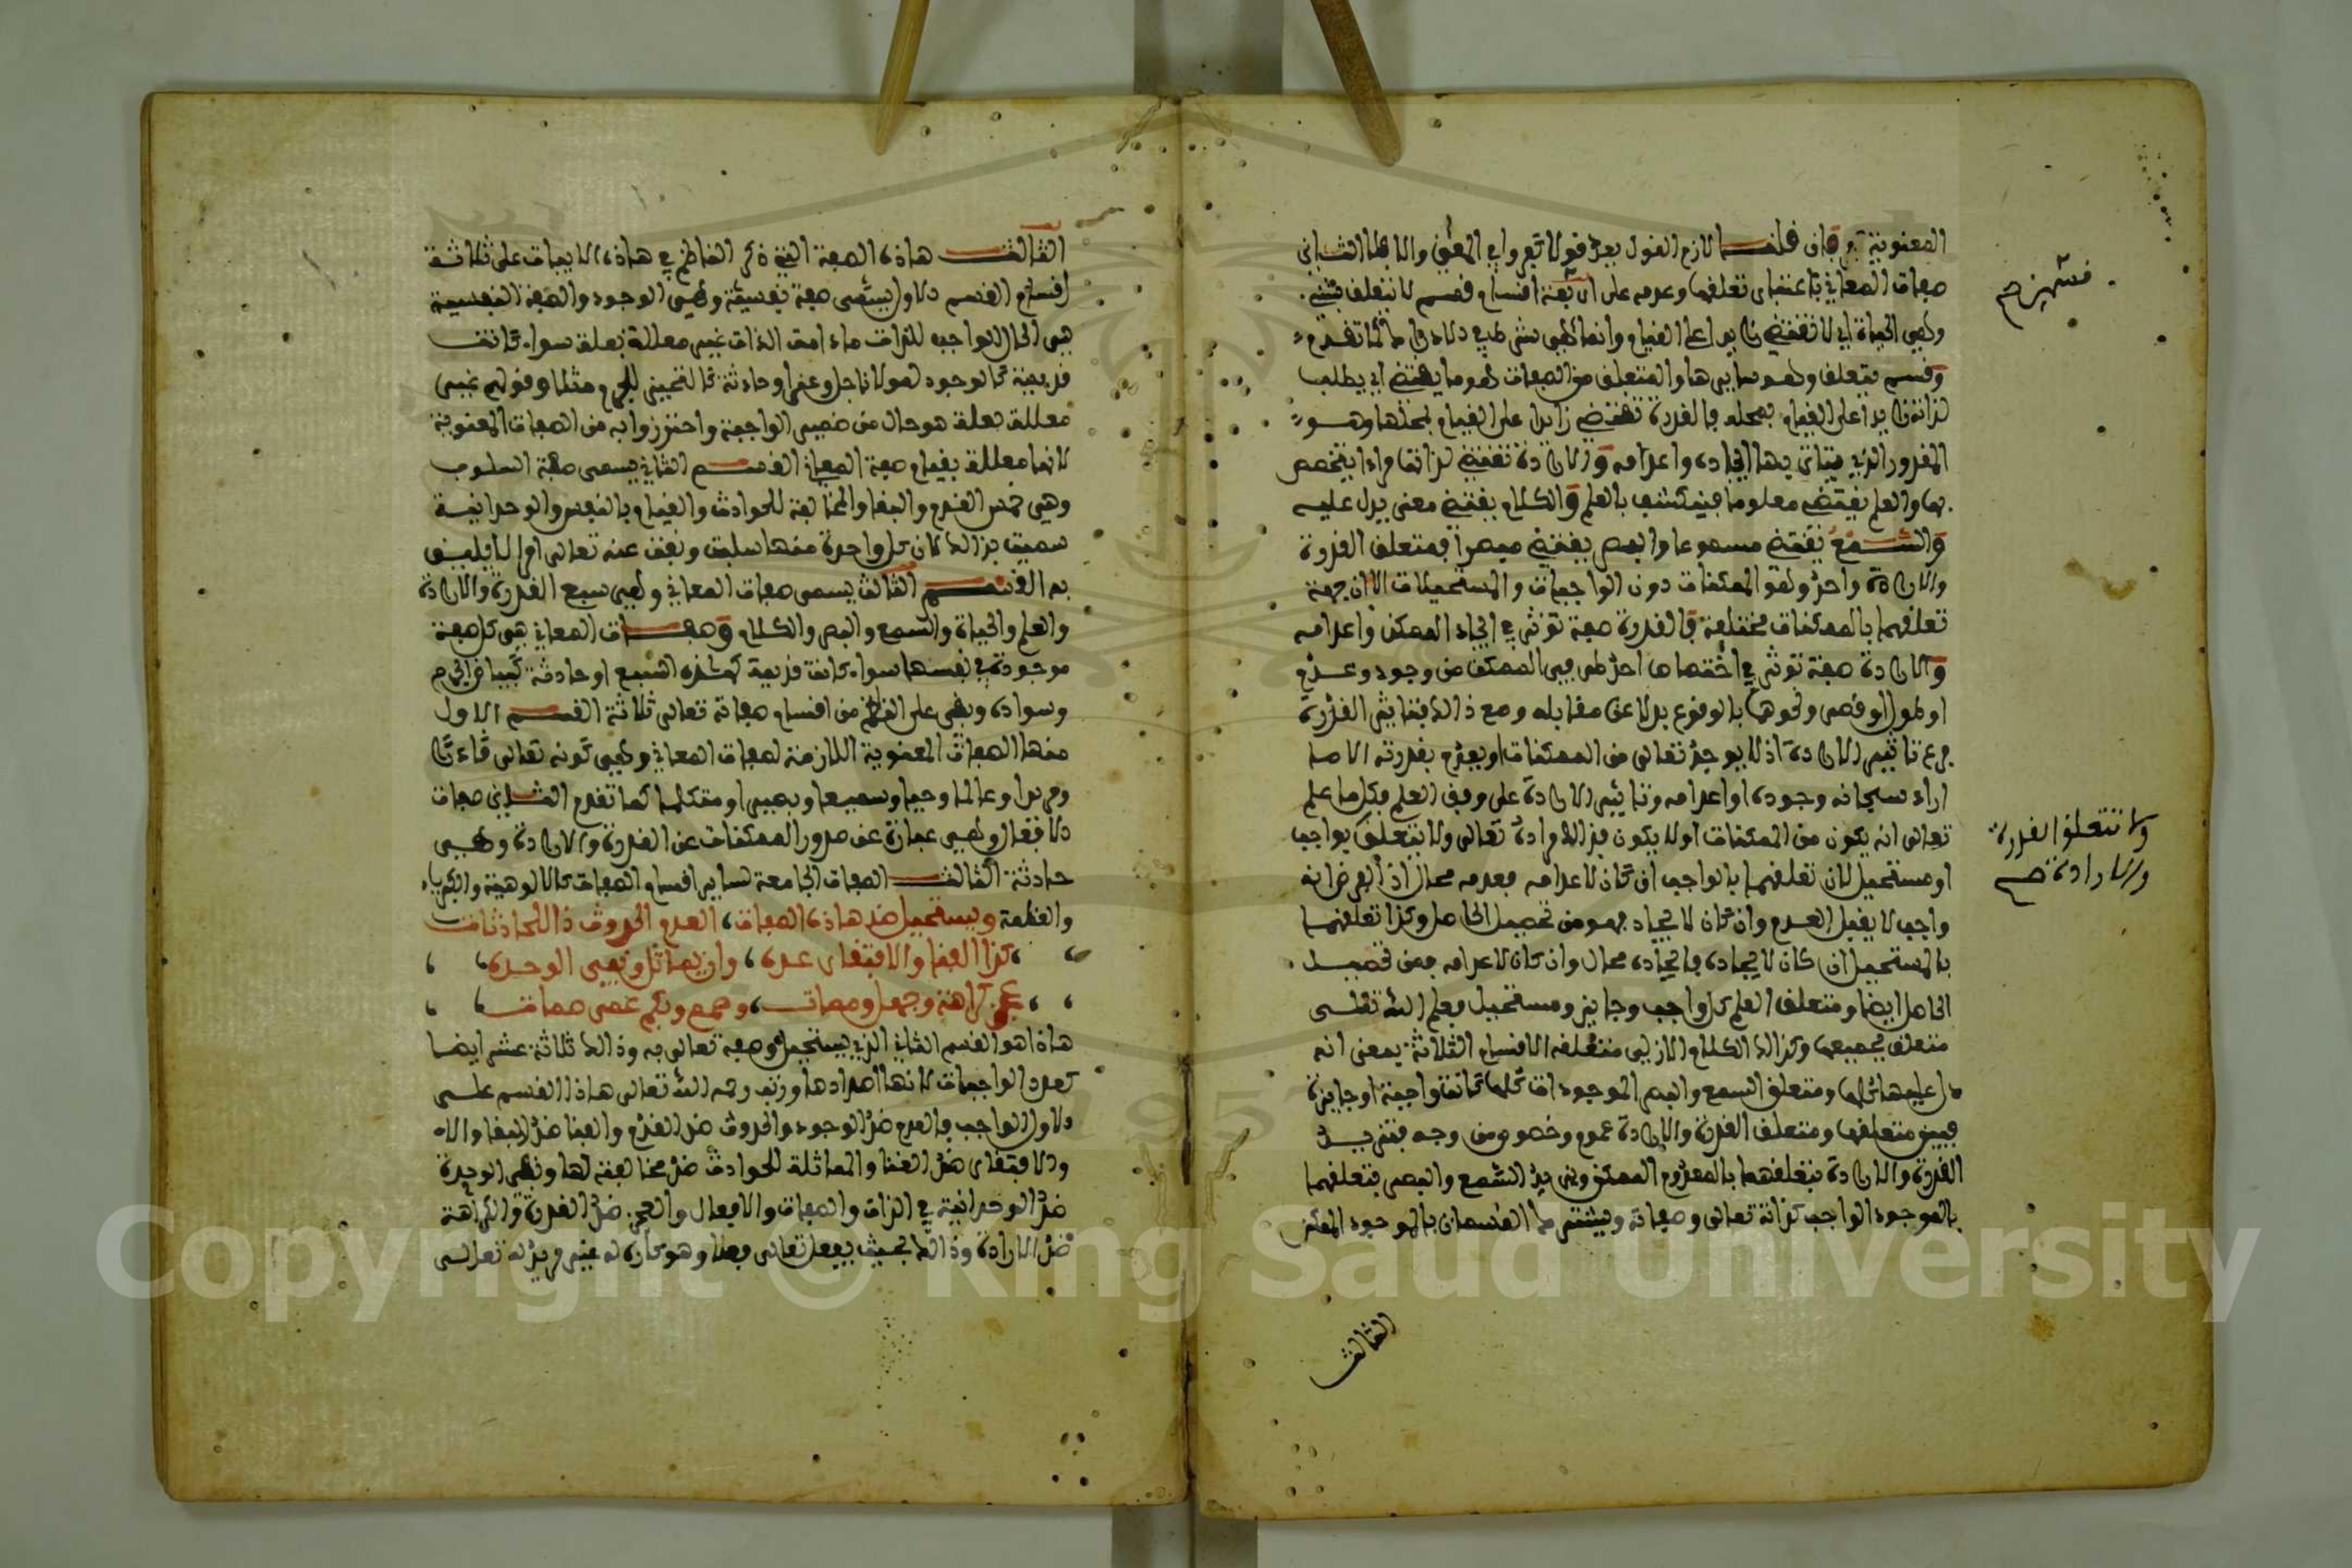 المعنوية وان قلت لازم القول بعد قولا تعروا في المعنى والا بطلا الثاني
صفات المعاني باعتبار تعلقها وعدمه على اربعة اقسام قسم لا يتعلق بشيء
وهي الحياة اي لا تقتضي زايدا على القيام وانما هي شرط في الادراك كما تقدم
وقسم يتعلق وهو سايرها والمتعلق من الصفات هو ما يقتضي اي يطلب
لذاته زايدا على القيام بمحله فالقدرة تقتضي زايدا على القيام بمحلها وهو
المقدور الذي يتاتى بها ايجاده واعدامه والارادة تقتضي لذاتها مرادا يتخصص
بها والعلم يقتضي معلوما فينكشف بالعلم والكلام يقتضي معنى يدل عليه
والسمع يقتضي مسموعا والبصر يقتضي مبصرا فمتعلق القدرة
والارادة واحد وهو الممكنات دون الواجبات والمستحيلات الا ان جهة
تعلقهما بالممكنات مختلفة فالقدرة صفة تؤثر في ايجاد الممكن واعدامه
والارادة صفة تؤثر في اختصاص احد طرفي الممكن من وجود وعدم
او طول او قصر ونحوها بالوقوع بدلا عن مقابله ومع ذالك فتاثير القدرة
فرع تاثير الارادة اذ لا يوجد تعالى من الممكنات او يعدم بقدرته الا ما
اراد سبحانه وجوده او اعدامه وتاثير الارادة على وفق العلم فكل ما علم
تعالى انه يكون من الممكنات او لا يكون فذالك مراده تعالى ولا يتعلق بواجب
او مستحيل لان تعلقهما بالواجب ان كان لاعدامه فعدمه محال اذ الفرض انه
واجب لا يقبل العدم وان كان لايجاده فهو من تحصيل الحاصل وكذا تعلقهما
بالمستحيل ان كان لايجاده فايجاده محال وان كان لاعدامه فمن تحصيل
الحاصل ايضا ومتعلق العلم كل واجب وجايز ومستحيل فعلم الله تعالى
متعلق بجميعها وكذالك الكلام الازلي متعلقه الاقسام الثلاثة بمعنى انه
دل عليها كلها ومتعلق السمع والبصر الموجودات كلها كانت واجبة او جايزة
فبين متعلقها ومتعلق القدرة والارادة عموم وخصوص من وجه فتزيد
القدرة والارادة بتعلقهما بالمعدوم الممكن ويزيد السمع والبصر بتعلقهما
بالموجود الواجب كذاته تعالى وصفاته ويشترك القسمان بالموجود الممكن
الثالث
ولا تتعلق القدرة
والارادة صح
الثالث هاذه الصفة التي ذكر الناظم في هاذه الابيات على ثلاثة
اقسام القسم الاول يسمى صفة نفسية وهي الوجود والصفة النفسية
هي الحال الواجبة للذات ما دامت الذات غير معللة بعلة سواء كانت
قديمة كالوجود لمولانا جل وعز او حادثة كالتحيز للجرم مثلا وقولهم غير
معللة بعلة هو حال من ضمير الواجبة واحترزوا به من الصفات المعنوية
لانها معللة بقيام صفة المعاني القسم الثاني يسمى صفة السلوب
وهي خمس القدم والبقا والمخالفة للحوادث والقيام بالنفس والوحدانية
سميت بذالك لان كل واحدة منها سلبت ونفت عنه تعالى امرا لا يليق
به القسم الثالث يسمى صفات المعاني وهي سبع القدرة والارادة
والعلم والحياة والسمع والبصر والكلام وصفات المعاني هي كل صفة
موجودة في نفسها سواء كانت قديمة كهذه السبع او حادثة كبياض الجرم
وسواده وبقي على الناظم من اقسام صفاته تعالى ثلاثة القسم الاول
منها الصفات المعنوية اللازمة لصفات المعاني وهي كونه تعالى قادرا
ومريدا وعالما وحيا وسميعا وبصيرا ومتكلما كما تقدم الثاني صفات
الافعال وهي عبارة عن صدور الممكنات عن القدرة والارادة وهي
حادثة الثالث الصفات الجامعة لساير اقسام الصفات كالالوهية والكبرياء
والعظمة ويستحيل ضد هاذه الصفات العدم الحدوث ذا للحادثات
كذا الفنا والافتقار عده وان يماثل ونفي الوحده
عجز كراهة وجهل وممات وصمم وبكم عمى صمات
هاذا هو القسم الثاني الذي يستحيل وصفه تعالى به وذالك ثلاثة عشر ايضا
كعدد الواجبات لانها اضدادها ورتب رحمه الله تعالى هاذا القسم على
الاول الواجب فالعدم ضد الوجود والحدوث ضد القدم والفنا ضد البقا والا
والافتقار ضد الغنا والمماثلة للحوادث ضد مخالفته لها ونفي الوحدة
ضد الوحدانية في الذات والصفات والافعال والعجز ضد القدرة والكراهة
ضد الارادة وذالك بحيث يفعل تعالى فعلا وهو كاره له غير مريد له تعالى